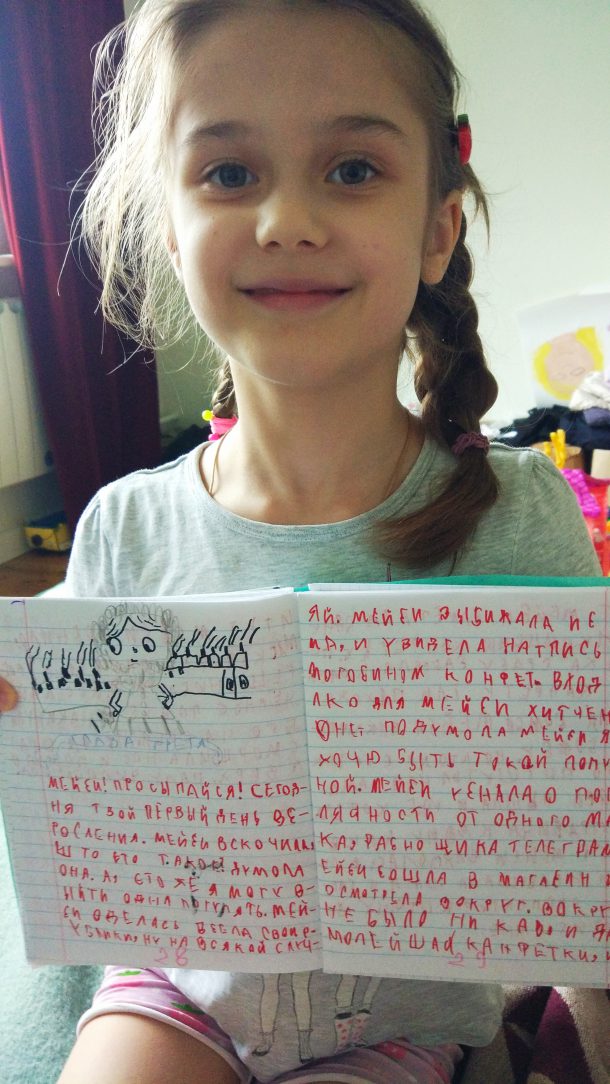 ГЛАВА ТРЕТА
МЕЙЕЙ! ПРОСЫПАЙСЯ! СЕГОВ-
НЯ ТВОЙ ПЕРВЫЙ ДЕНЬ ВЕ-
РОСЛЕНИЯ. МЕЙЕЙ ВСКОЧИЛА,
ШТО ЕТО ТАКОЕ! ДУМОЛА
ОНА. А, ЕТО ЖЕ Я МОГУ
ОДНА ПОГУЛЯТЬ. МЕЙ-
ЕЙ ОДЕЛАСЬ ВЗЕЛА
НУ НА ВСЯКОЙ СЛУЧ-
28
ЯЙ. МЕЙЕЙ ВЫБИЖАЛА ИЕ
И УВИДЕЛА НАТПИСЬ
МОГОЗИНОМ КОНФЕТ. ВХОД
ЛКО ДЛЯ МЕЙЕЙ ХИТЧЕН
ОНЕТ ПОДУМОЛА МЕЙЕЙ Я
ХОЧЮ БЫТЬ ТОКОЙ ПОПУ
НОЙ. МЕЙЕЙ УЕНАЛА О ПОП
ЛЯРНОСТИ ОТ ОДНОГО МА
КА, РАЕНОЩИКА ТЕЛЕГРАМ
ЕЙЕЙ ЕОШЛА В МАГАЕИН И
ОСМОТРЕЛА ВОКРУГ. ВОКРУ
НЕ БЫЛО НИ КАВО, И ЯИ
МОЛЕЙШАЙ КАНФЕТКИ, И
29